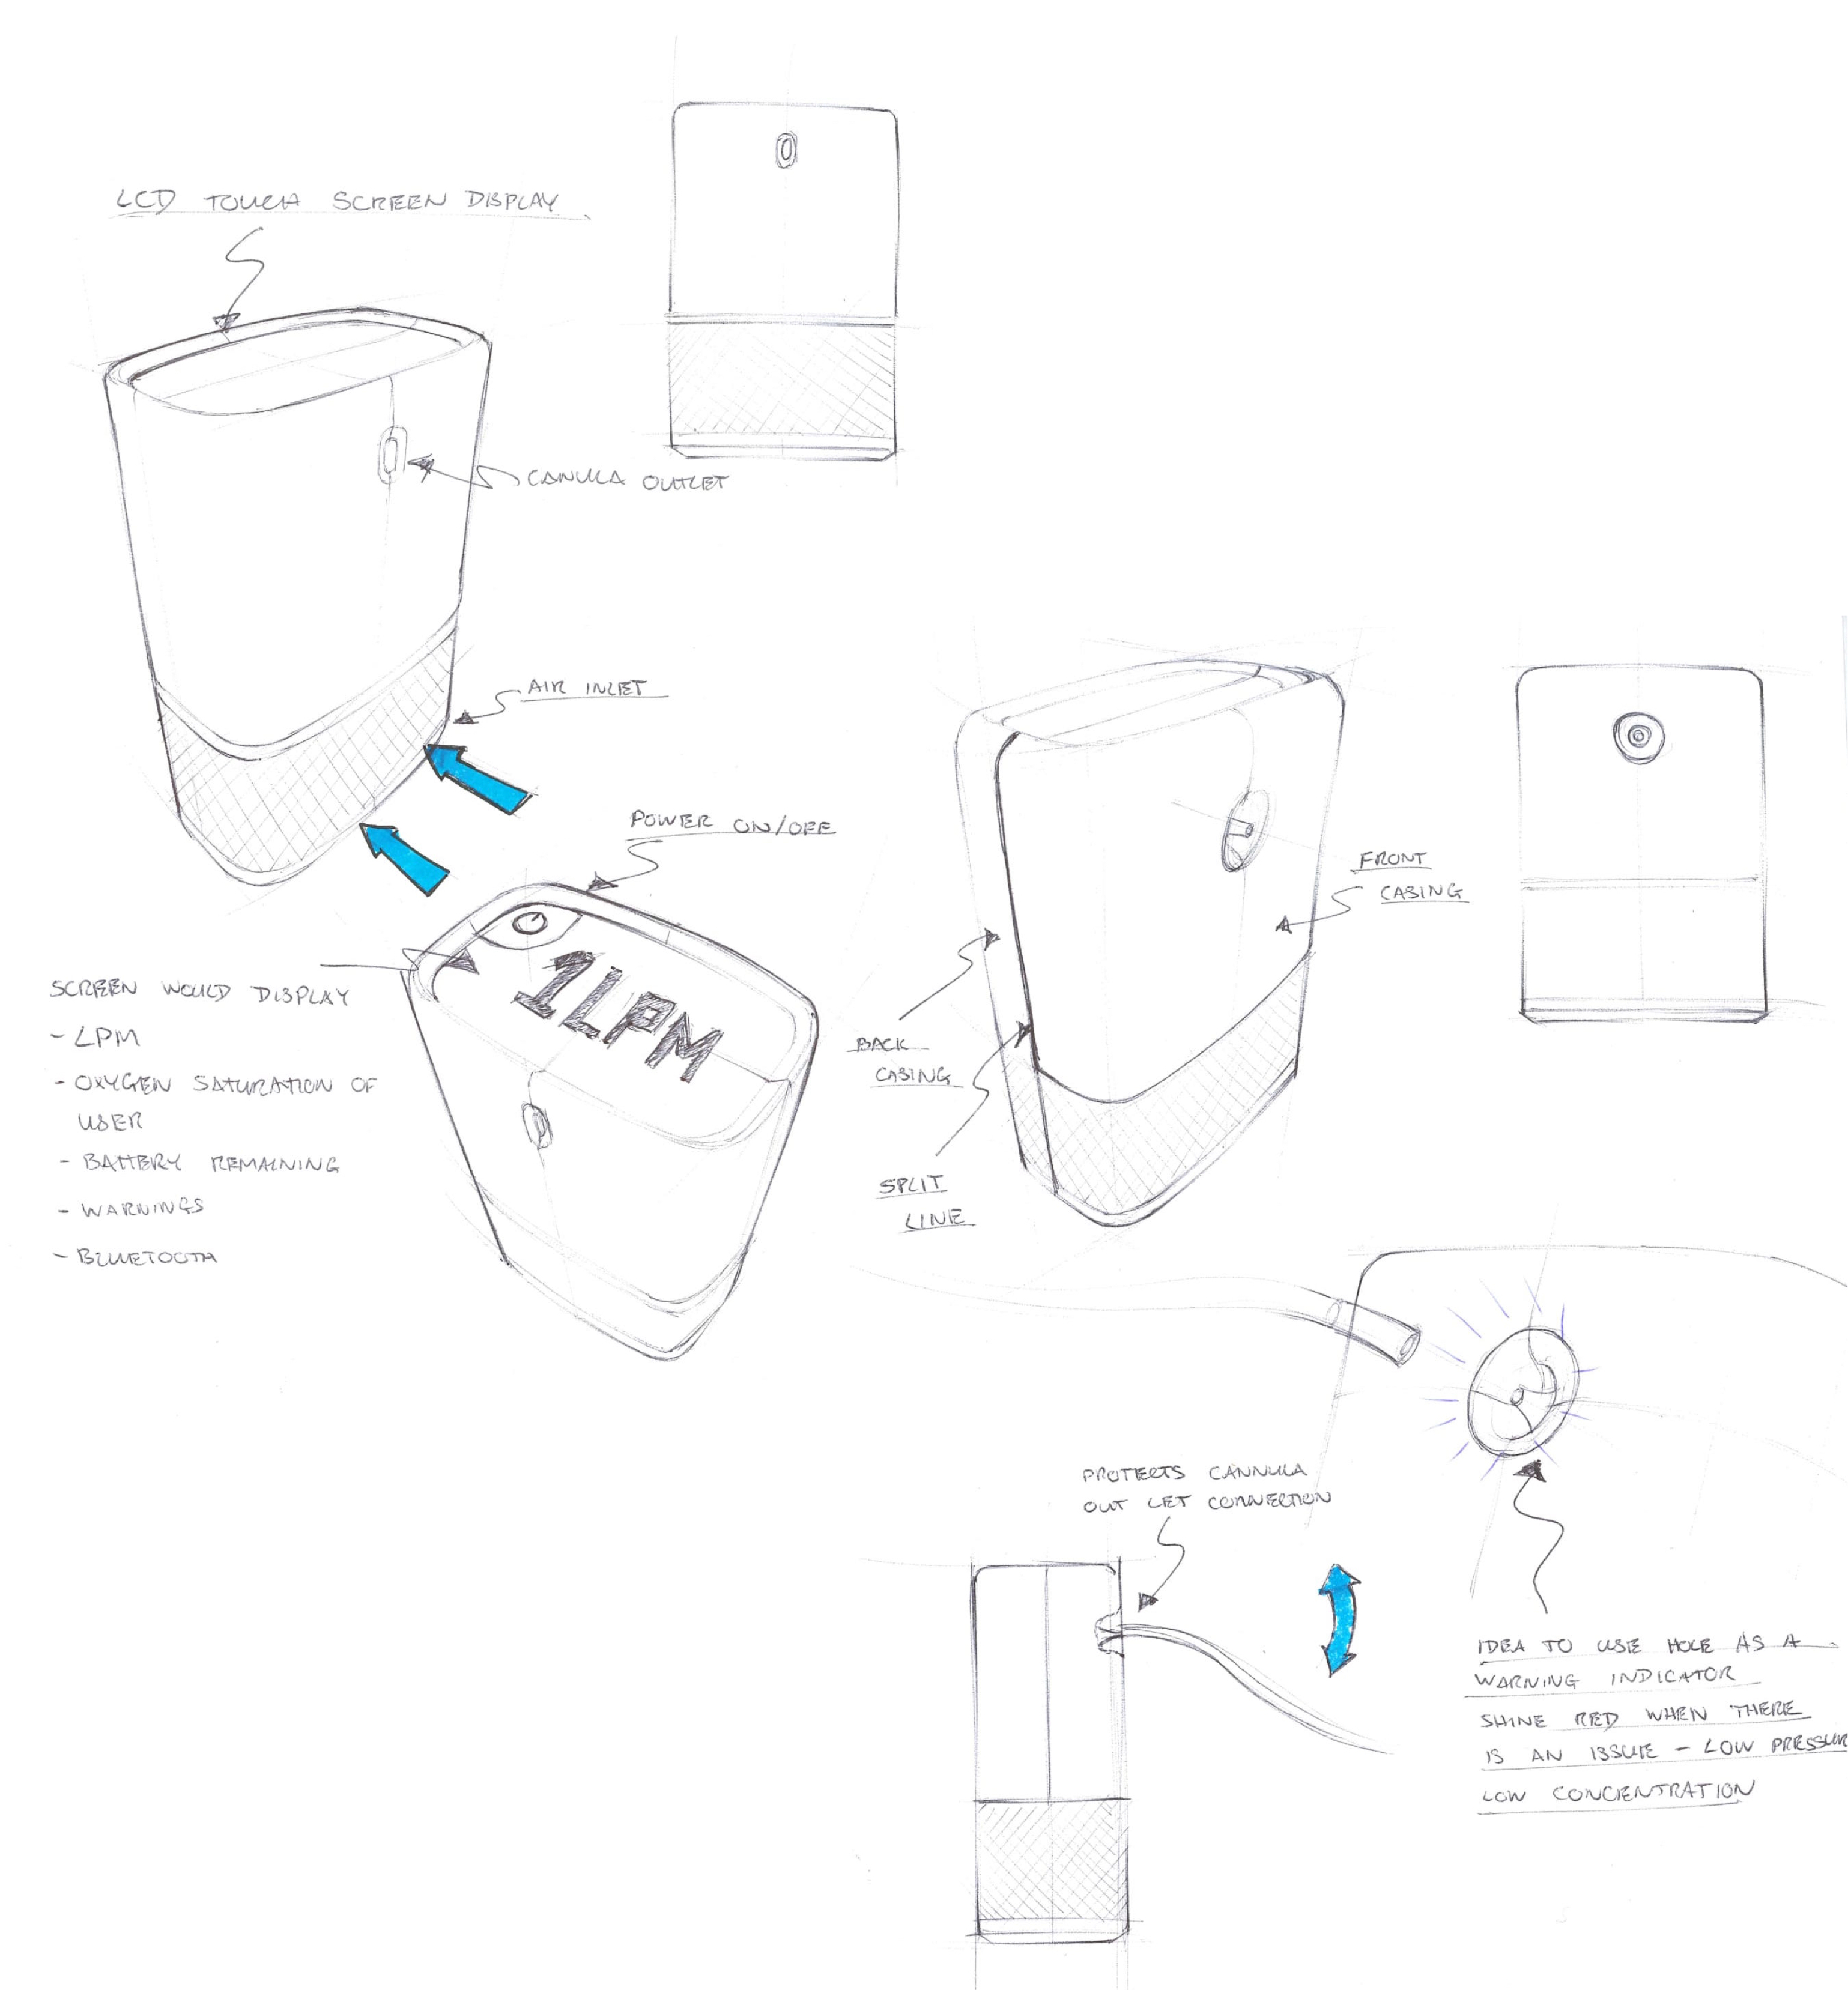 LCD TOUCH SCREEN DISPLAY
CANULA OUTLET
AIR INLET
POWER ON/OFF
1LPM
SCREEN WOULD DISPLAY
- LPM
- OXYGEN SATURATION OF
USER
- BATTERY REMAINING
- WARNINGS
- BLUETOOTH
FRONT
CASING
BACK
CASING
SPLIT
LINE
PROTECTS CANNULA
OUT LET CONNECTION
IDEA TO USE HOLE AS A
WARNING INDICATOR
SHINE RED WHEN THERE
IS AN ISSUE - LOW PRESSUR
LOW CONCENTRATION